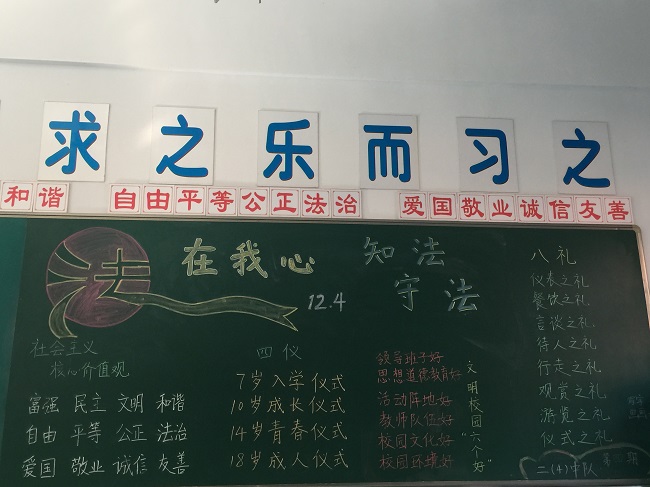 求之乐而习之
和谐 自由平等公正法治 爱国敬业诚信友善
法在我心
知法
守法
12.4
社会主义
核心价值观
富强 民主 文明 和谐
自由 平等 公正 法治
爱国 敬业 诚信 友善
四仪
7岁入学仪式
10岁成长仪式
14岁青春仪式
18岁成人仪式
领导班子好
思想道德教育好
活动阵地好
教师队伍好
校园文化好
校园环境好
文明校园"六个好"
八礼
仪表之礼
餐饮之礼
言谈之礼
待人之礼
行走之礼
观赏之礼
游览之礼
仪式之礼
二(4)中队